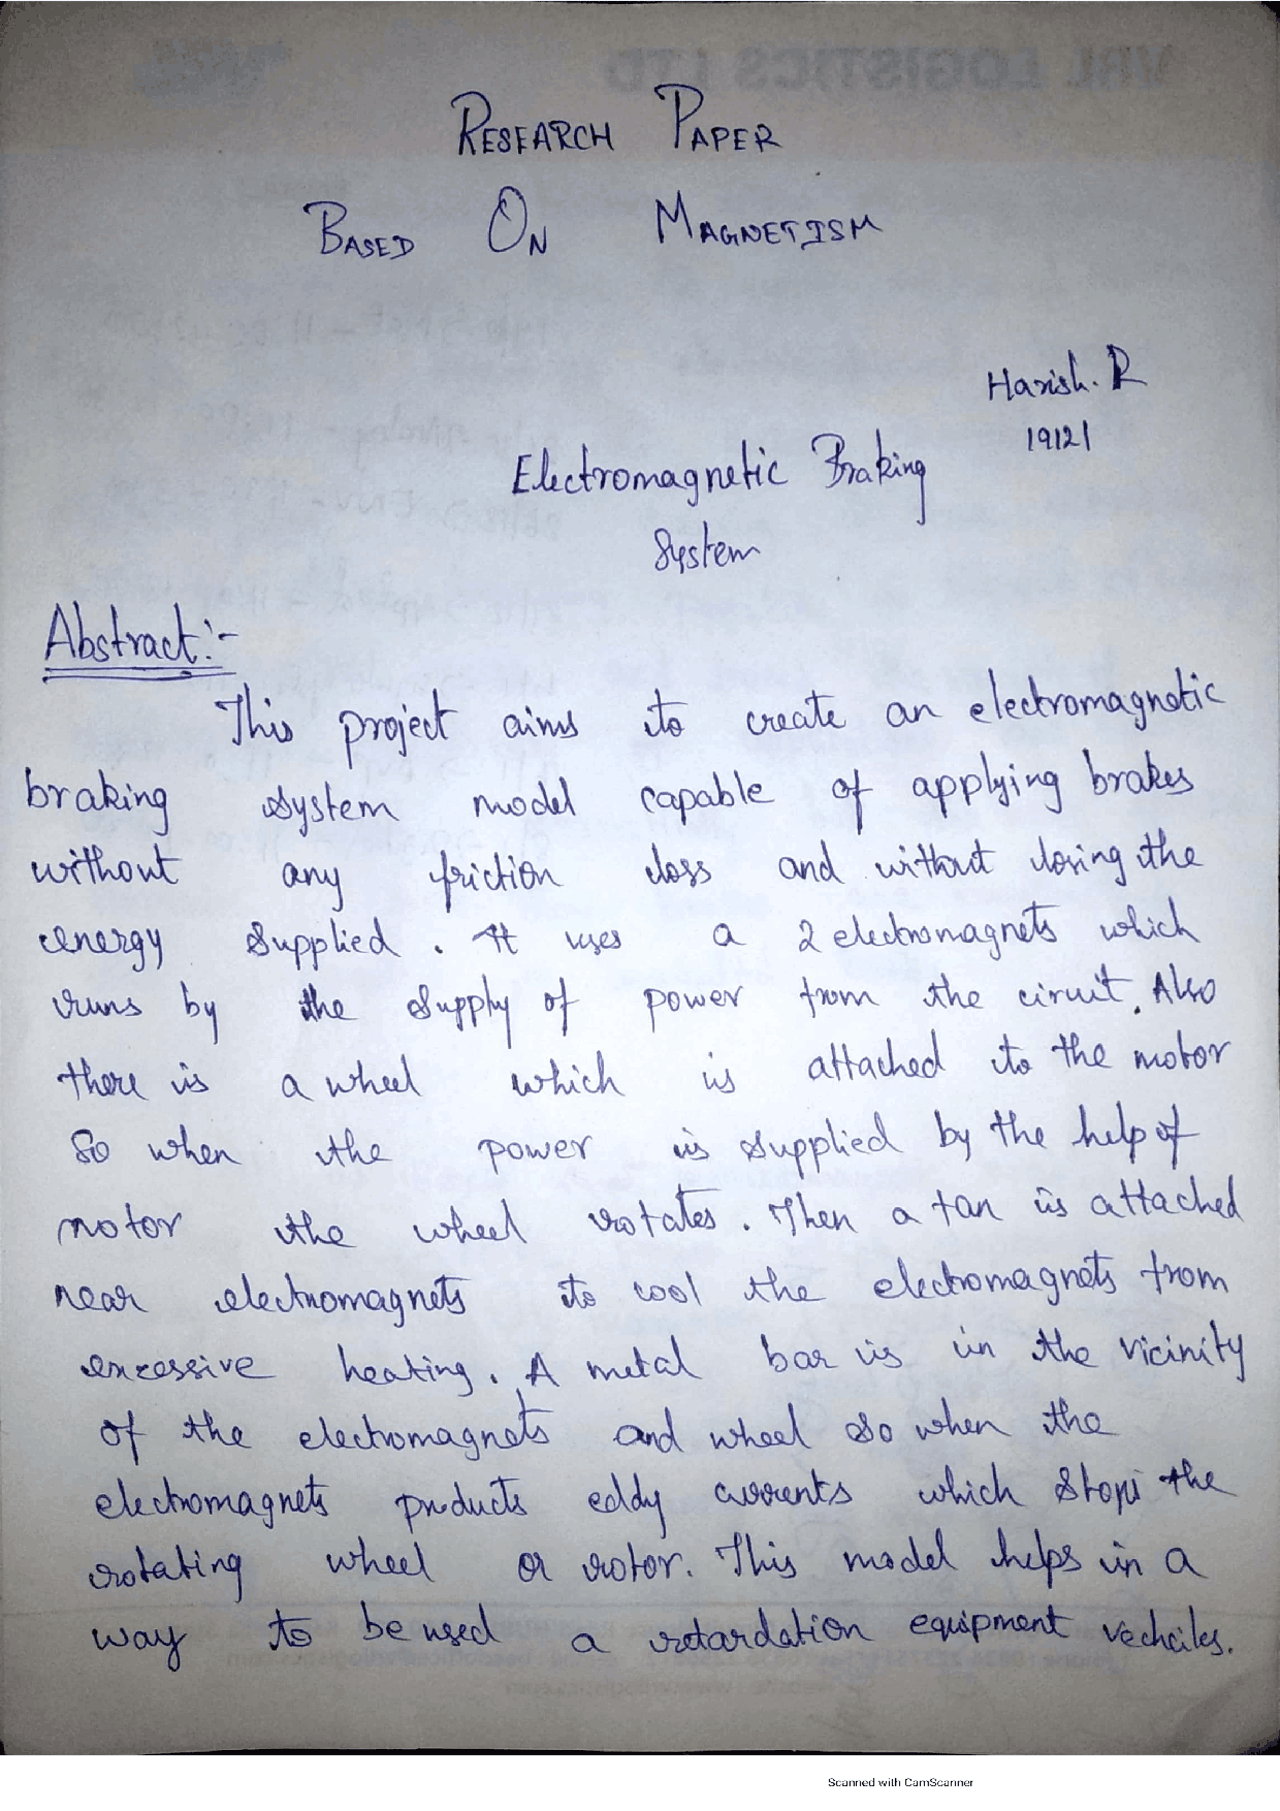 RESEARCH PAPER
BASED ON MAGNETISM
Harish. R
19121
Electromagnetic Braking
System
Abstract:-
This project aims to create an electromagnetic
braking system model capable of applying brakes
without any friction loss and without losing the
energy supplied. It uses a 2 electromagnets which
runs by the supply of power from the ciruit. Also
there is a wheel which is attached to the motor
So when the power is supplied by the help of
motor the wheel rotates. Then a fan is attached
near electromagnets to cool the electromagnets from
excessive heating. A metal bar is in the vicinity
of the electromagnets and wheel so when the
electromagnets products eddy currents which stops the
rotating wheel or rotor. This model helps in a
way to be used a retardation equipment vechciles.
Scanned with CamScanner